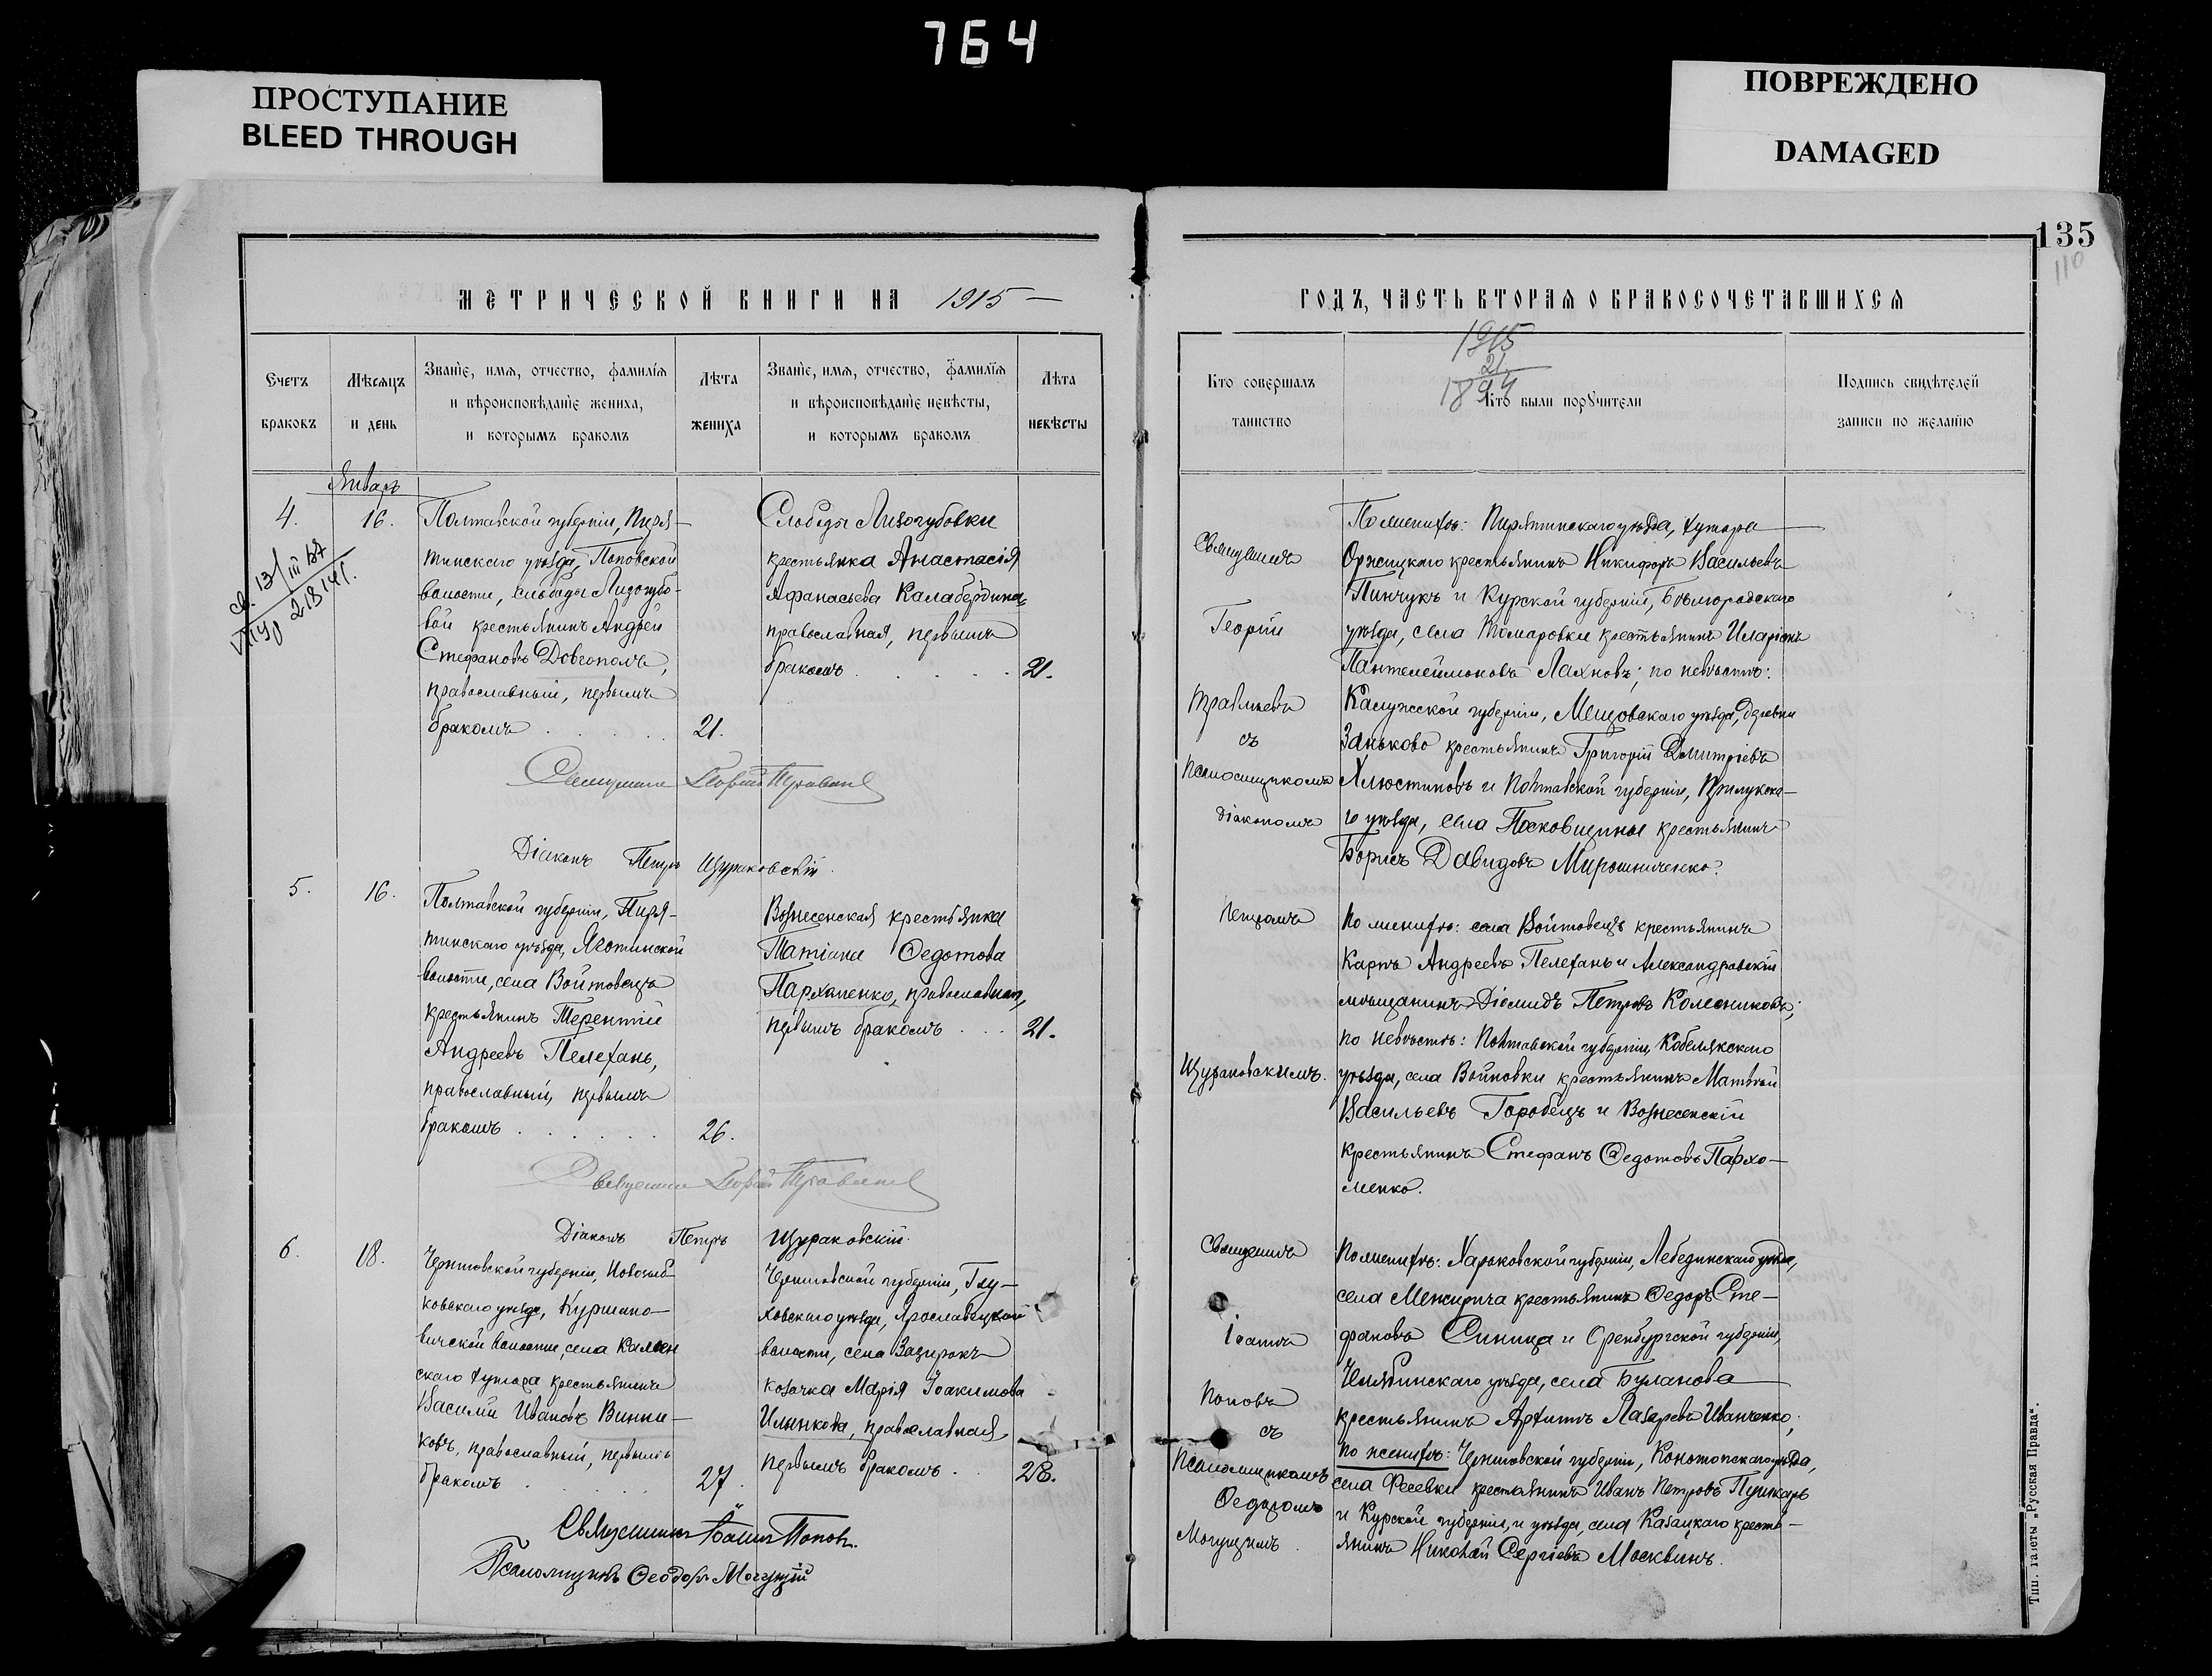 764
ПРОСТУПАНИЕ
BLEED THROUGH
ПОВРЕЖДЕНО
DAMAGED
135
110
МЕТРИЧЕСКОЙ КНИГИ НА 1915
Счетъ браковъ
Мѣсяцъ и день
Званїе, имя, отчество, фамилїя
и вѣроисповѣданїе жениха,
и которымъ бракомъ
Лѣта жениха
Званїе, имя, отчество, фамилїя
и вѣроисповѣданїе невѣсты,
и которымъ бракомъ
Лѣта невѣсты
Январь
4.
16.
Полтавской губерніи, Пиря-
тинскаго уѣзда, Поповской
волости, слободы Лизогубо-
вой крестьянинъ Андрей
Стефановъ Довгополъ,
православный, первымъ
бракомъ
21.
Слободы Лизогубовки
крестьянка Анастасія
Афанасьева Калабердина,
православная, первымъ
бракомъ
21.
Священникъ Георгій
Діаконъ Петръ Щураковскій.
5.
16.
Полтавской губерніи, Пиря-
тинскаго уѣзда,
волости, села Войтовецъ
крестьянинъ Терентій
Андреевъ Пелехань,
православный, первымъ
бракомъ
26.
Вознесенская крестьянка
Татіана Ѳедотова
Пархоменко, православная,
первымъ бракомъ
21.
Священникъ Георгій
Діаконъ Петръ Щураковскій.
6.
18.
Черниговской губерніи, Новозыб-
ковскаго уѣзда,
вичской волости, села Камен
скаго хутора крестьянинъ
Василій Ивановъ Винни-
ковъ, православный, первымъ
бракомъ
27.
Черниговской губерніи, Глу-
ховскаго уѣзда, Ярославецкой
волости, села Зазирокъ
козачка Марія Іоакимова
Ильинкова, православная
первымъ бракомъ
28.
Священникъ Іоаннъ Поповъ.
Псаломщикъ Ѳеодоръ Могуцкій
ГОДЪ, ЧАСТЬ ВТОРАЯ О БРАКОСОЧЕТАВШИХСЯ
1915
21
1894
Кто совершалъ таинство
Кто были поручители
Подпись свидѣтелей
записи по желанїю
Священникъ
Георгій
съ
Псаломщикомъ
діакономъ
Петромъ
Щураковскимъ.
По женихѣ: Пирятинскаго уѣзда, хутора
Оржицкаго крестьянинъ Никифоръ Васильевъ
Пинчукъ и Курской губерніи, Бѣлгородскаго
уѣзда, села Томаровки крестьянинъ Иларіонъ
Пантелеймоновъ Лахновъ; по невѣстѣ:
Калужской губерніи, Мещовскаго уѣзда, деревни
Заньково крестьянинъ Григорій Димитріевъ
Хлюстиновъ и Полтавской губерніи, Прилукска-
го уѣзда, села Песковщины крестьянинъ
Борисъ Давидовъ Мирошниченко.
По женихѣ: села Войтовецъ крестьянинъ
Карпъ Андреевъ Пелехань и Александровскій
мѣщанинъ Діомидъ Петровъ Колесниковъ;
по невѣстѣ: Полтавской губерніи, Кобелякскаго
уѣзда, села Войновки крестьянинъ Матвѣй
Васильевъ Горобецъ и Вознесенскій
крестьянинъ Стефанъ Ѳедотовъ Пархо-
менко.
Священникъ
Іоаннъ
Поповъ
съ
Псаломщикомъ
Ѳедоромъ
Могуцкимъ.
По женихѣ: Харьковской губерніи, Лебединскаго уѣзда,
села Межирича крестьянинъ Ѳедоръ Сте-
фановъ Синица и Оренбургской губерніи,
Челябинскаго уѣзда, села Буланова
крестьянинъ Архипъ Лазаревъ Иванченко;
по женихѣ: Черниговской губерніи, Конотопскаго уѣзда,
села Фесевки крестьянинъ Иванъ Петровъ Пушкарь
и Курской губерніи, и уѣзда, села Казацкаго кресть-
янинъ Николай Сергіевъ Москвинъ.
Тип. газеты „Русская Правда“.